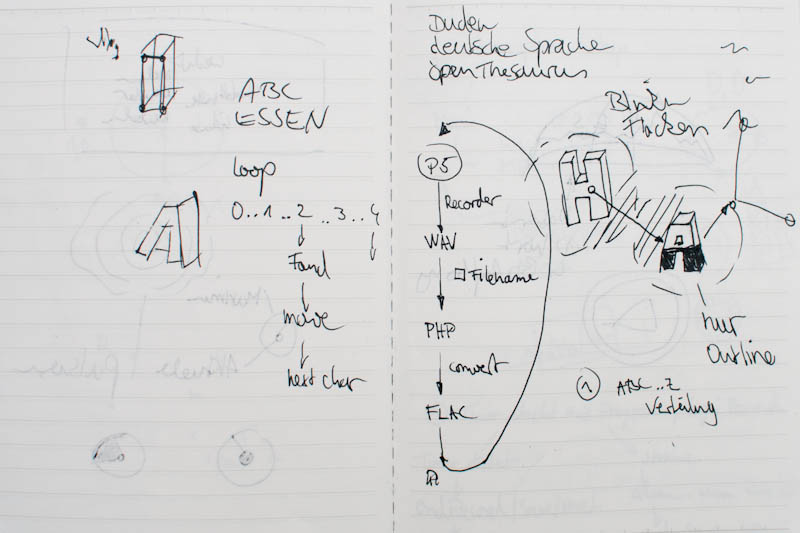 ABC
ESSEN
Loop
0..1..2..3..4
Found
move
next char
Duden
deutsche Sprache
openThesaurus
P5
Recorder
WAV
Filename
PHP
convert
FLAC
Blinken
Flackern
nur
Outline
1 ABC..Z
Verteilung